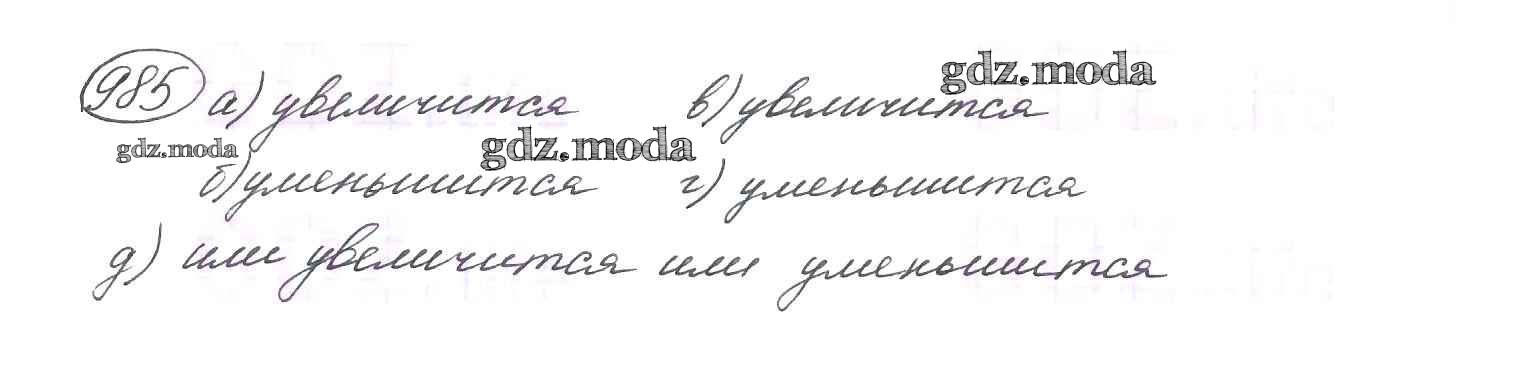 gdz.moda
985 а) увеличится в) увеличится
gdz.moda gdz.moda
б) уменьшится г) уменьшится
д) или увеличится или уменьшится